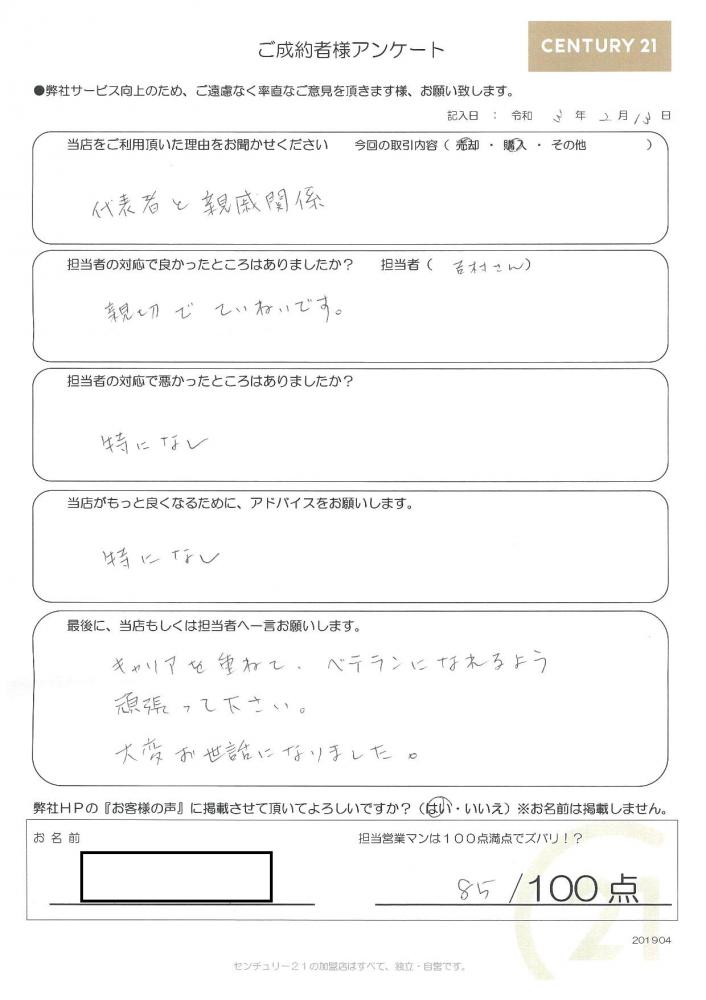 ご成約者様アンケート
CENTURY 21
●弊社サービス向上のため、ご遠慮なく率直なご意見を頂きます様、お願い致します。
記入日 : 令和 3 年 2 月 13 日
当店をご利用頂いた理由をお聞かせください 今回の取引内容 ( 売却 ・ 購入 ・ その他 )
代表者と親戚関係
担当者の対応で良かったところはありましたか? 担当者 ( 吉村さん )
親切でていねいです。
担当者の対応で悪かったところはありましたか?
特になし
当店がもっと良くなるために、アドバイスをお願いします。
特になし
最後に、当店もしくは担当者へ一言お願いします。
キャリアを重ねて、ベテランになれるよう
頑張って下さい。
大変お世話になりました。
弊社HPの『お客様の声』に掲載させて頂いてよろしいですか? (はい・いいえ) ※お名前は掲載しません。
お 名 前
担当営業マンは100点満点でズバリ!?
85 /100 点
201904
センチュリー21の加盟店はすべて、独立・自営です。